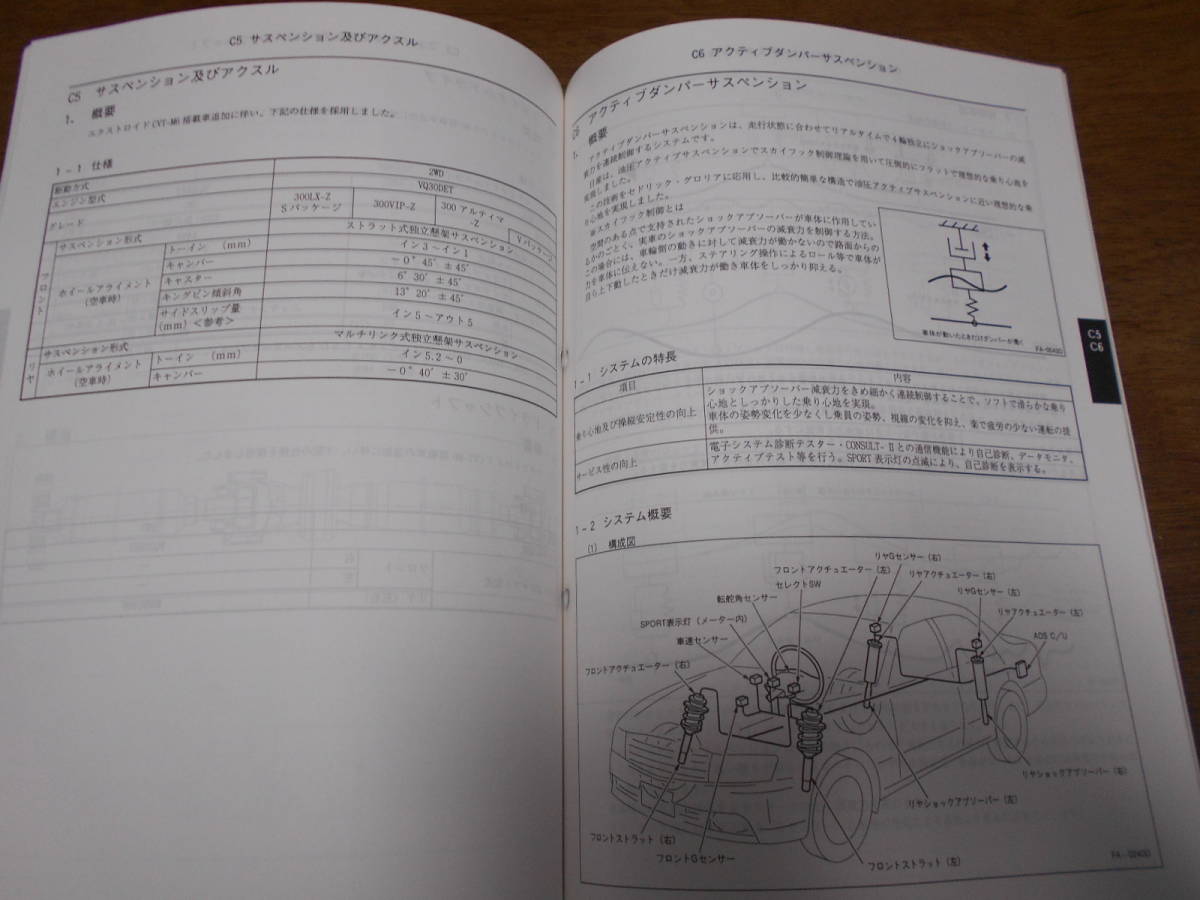 C5 サスペンション及びアクスル
C5 サスペンション及びアクスル
1. 概要
エクストロイドCVT-M6搭載車追加に伴い、下記の仕様を採用しました。
1-1 仕様
駆動方式 2WD
エンジン型式 VQ30DET
グレード 300LX-Z Sパッケージ 300VIP-Z 300 アルティマ-Z Vパッケージ
フロント サスペンション形式 ストラット式独立懸架サスペンション
ホイールアライメント (空車時) トーイン (mm) イン3～イン1
キャンバー -0°45′±45′
キャスター 6°30′±45′
キングピン傾斜角 13°20′±45′
サイドスリップ量 (mm)<参考> イン5～アウト5
リヤ サスペンション形式 マルチリンク式独立懸架サスペンション
ホイールアライメント (空車時) トーイン (mm) イン5.2～0
キャンバー -0°40′±30′
C6 アクティブダンパーサスペンション
C6 アクティブダンパーサスペンション
1. 概要
アクティブダンパーサスペンションは、走行状態に合わせてリアルタイムで4輪独立にショックアブソーバーの減
衰力を連続制御するシステムです。
日産は、油圧アクティブサスペンションでスカイフック制御理論を用いて圧倒的にフラットで理想的な乗り心地を
実現しました。
この技術をセドリック・グロリアに応用し、比較的簡単な構造で油圧アクティブサスペンションに近い理想的な乗
り心地を実現しました。
※スカイフック制御とは
空間のある点で支持されたショックアブソーバーが車体に作用してい
るかのごとく、実車のショックアブソーバーの減衰力を制御する方法。
この場合には、車輪側の動きに対して減衰力が働かないので路面からの
力を車体に伝えない。一方、ステアリング操作によるロール等で車体が
自ら上下動したときだけ減衰力が働き車体をしっかり抑える。
車体が動いたときだけダンパーが働く
FA-0040D
1-1 システムの特長
項目 内容
乗り心地及び操縦安定性の向上 ショックアブソーバー減衰力をきめ細かく連続制御することで、ソフトで滑らかな乗り
心地としっかりした乗り心地を実現。
車体の姿勢変化を少なくし乗員の姿勢、視線の変化を抑え、楽で疲労の少ない運転の提
供。
サービス性の向上 電子システム診断テスター・CONSULT-Ⅱとの通信機能により自己診断、データモニタ、
アクティブテスト等を行う。SPORT表示灯の点滅により、自己診断を表示する。
1-2 システム概要
(1) 構成図
リヤGセンサー(右)
フロントアクチュエーター(左)
リヤアクチュエーター(右)
セレクトSW
リヤGセンサー(左)
転舵角センサー
リヤアクチュエーター(左)
SPORT表示灯(メーター内)
ADS C/U
車速センサー
フロントアクチュエーター(右)
リヤショックアブソーバー(右)
リヤショックアブソーバー(左)
フロントストラット(右)
フロントGセンサー
フロントストラット(左)
C5
C6